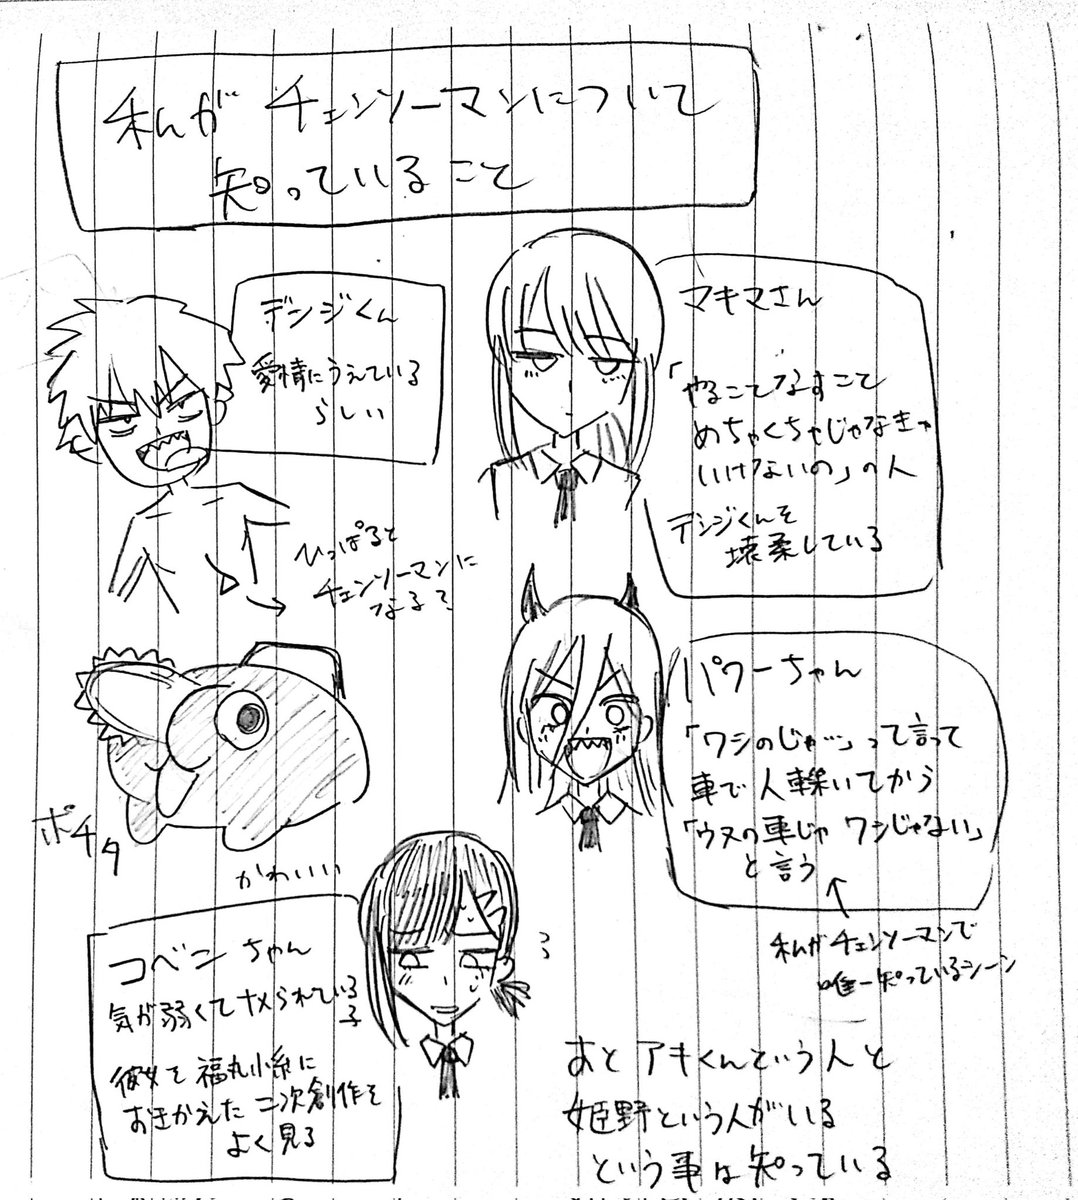 私が チェンソーマンについて
知っていること
デンジくん
愛情にうえている
らしい
ひっぱると
チェンソーマンに
なる?
マキマさん
「やることなすこと
めちゃくちゃじゃなきゃ
いけないの」の人
デンジくんを
壊柔している
ポチタ
かわいい
パワーちゃん
「ワシのじゃ…」って言って
車で人轢いてかう
「ウヌの車じゃ ワシじゃない」
と言う
私がチェンソーマンで
唯一知っているシーン
コベニちゃん
気が弱くてナメられている
子
彼女を福丸小糸に
おきかえた二次創作を
よく見る
あと アキくんという人と
姫野という人がいる
という事は知っている